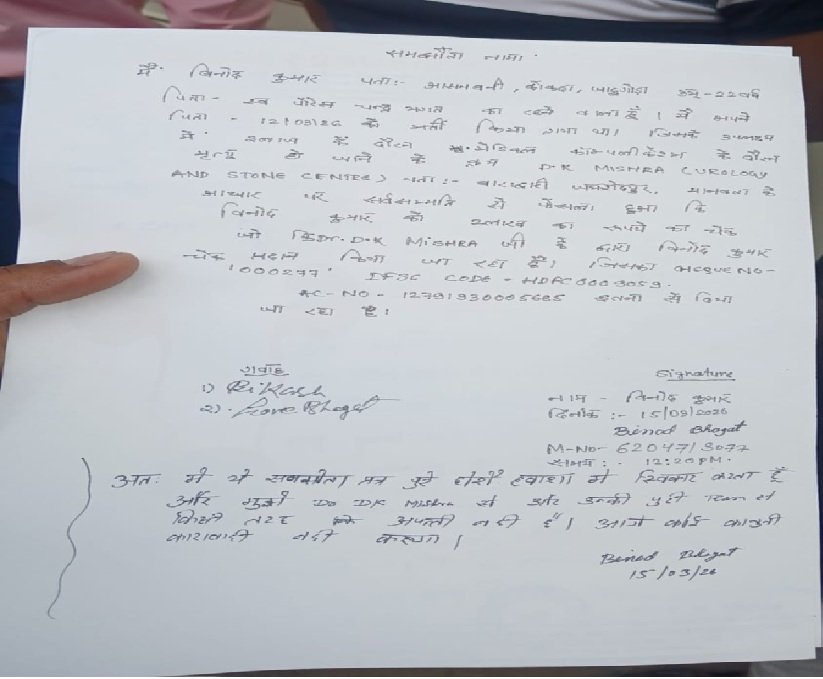 समझौता नामा
मैं विनोद कुमार पता:- आसनबनी, कोकदा, जादुगोड़ा उम्र-22वर्ष
पिता- स्व चन्द्र भगत का रहने वाला हूँ। मैं अपने
पिता - 12/03/26 को भर्ती किया गया था। जिनके उपचार
में इलाज के दौरान मेडिकल काम्पलीकेशन के दौरान
मृत्यु हो जाने के D.K MISHRA (UROLOGY
AND STONE CENTRE) पता:- बाराद्वारी जमशेदपुर. मानवता के
आधार पर सर्वसम्मति से फैसला हुआ कि
विनोद कुमार को का रूपये का चेक
जो कि Dr. D.K MISHRA जी के द्वारा विनोद कुमार
चेक प्रदान किया जा रहा है। जिसका NO-
'000277' IFSC CODE - HDFC0009059.
AC-NO - 12791930005685 से दिया
जा रहा है।
गवाह
1) Bikash
2). Bhagat
Signature
नाम - विनोद कुमार
दिनांक :- 15/03/2026
Binod Bhagat
M-No- 62047/3077
समय : 12:20PM.
अतः मैं ये समझौता पत्र पूरे होशो हवाश में स्विकार करता हूँ
और मुझे Dr D.K Mishra से और उनकी पुरी Team से
किसी तरह आपत्ती नही है। आगे कोई कानुनी
कारवाही नही करूंगा।
Binod Bhagat
15/03/26